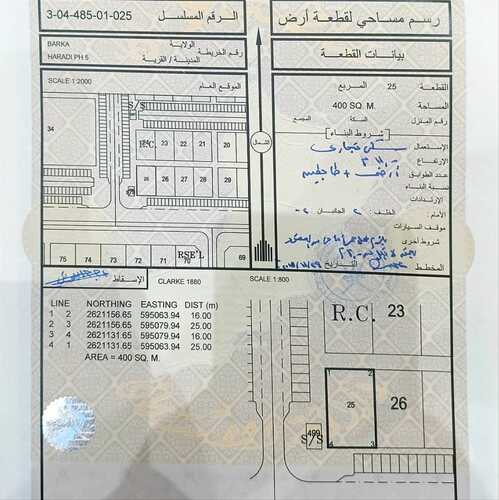 رسم مساحي لقطعة أرض
الرقم المسلسل 3-04-485-01-025
بيانات القطعة
الولاية BARKA
رقم الخريطة
المدينة / القرية HARADI PH.5
SCALE 1:2000 الموقع العام
القطعة 25 المربع
المساحة 400 SQ. M.
رقم المنزل السكة المجمع
شروط البناء
الاستعمال سكني تجاري
الارتفاع
عدد الطوابق
نسبة البناء
الإرتدادات
الأمام : الخلف : 2 الجانبان : 2
موقف السيارات
شروط أخرى
المخطط التاريخ
الشمال
34
S/S
R.C.
24 23 22 21 20
25 26 27 28 29
75 74 73 72 71 70
RSE'L
الإسقاط CLARKE 1880 SCALE 1:800
LINE NORTHING EASTING DIST (m)
1 2 2621156.65 595063.94 16.00
2 3 2621156.65 595079.94 25.00
3 4 2621131.65 595079.94 16.00
4 1 2621131.65 595063.94 25.00
AREA = 400 SQ. M.
R.C. 23
1 2
25 26
499
S/S
4 3